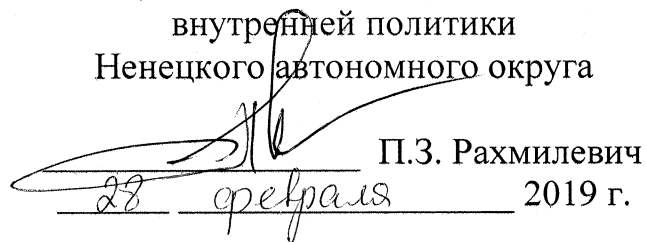 внутренней политики
Ненецкого автономного округа
П.З. Рахмилевич
28 февраля 2019 г.